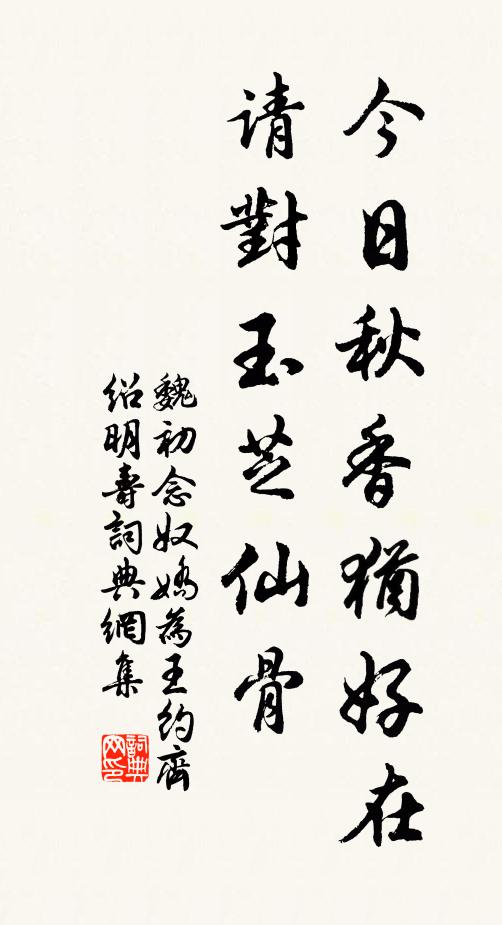 今日秋香猶好在
请對玉芝仙骨
魏初念奴嬌為王約齋
绍明壽詞典網集
詞典網印